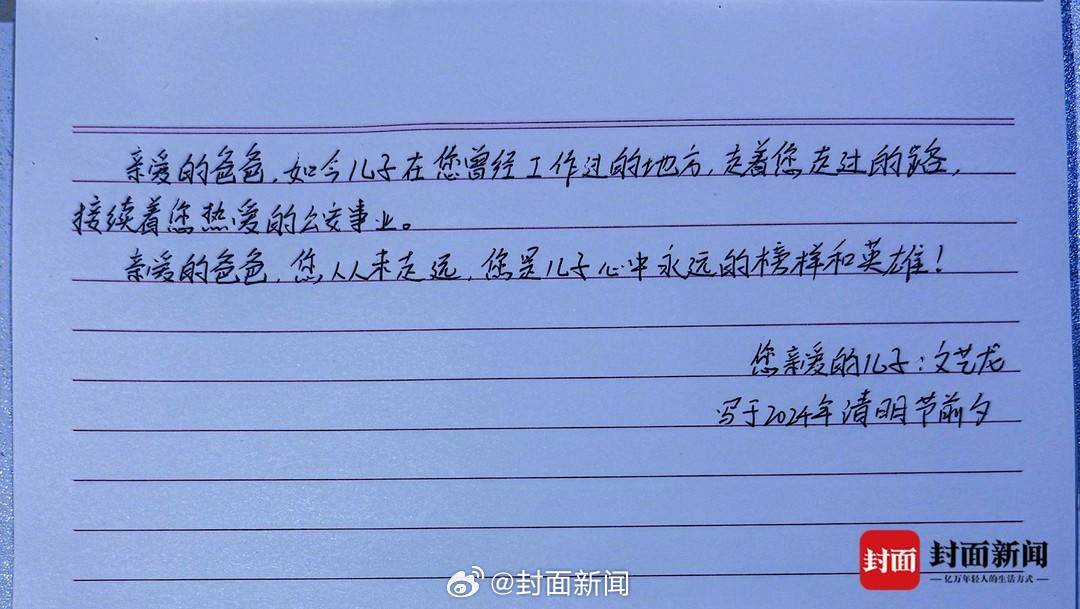 亲爱的爸爸,如今儿子在您曾经工作过的地方,走着您走过的路,
接续着您热爱的公安事业。
亲爱的爸爸,您从未走远,您是儿子心中永远的榜样和英雄!
您亲爱的儿子:文艺龙
写于2024年清明节前夕
封面 封面新闻
亿万年轻人的生活方式
@封面新闻